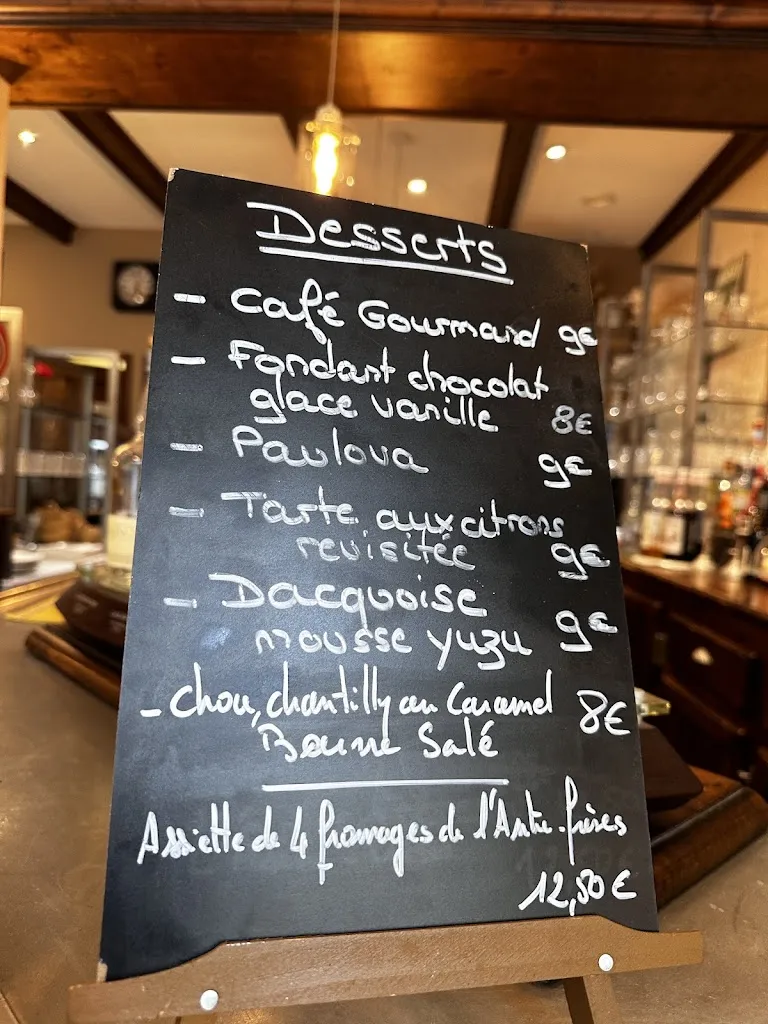 Desserts
- Café Gourmand 9€
- Fondant chocolat
glace vanille 8€
- Pavlova 9€
- Tarte aux citrons
revisitée 9€
- Dacquoise
mousse yuzu 9€
- Chou, chantilly au Caramel 8€
Beurre Salé
Assiette de 4 fromages de l'Antre-frères
12,50€